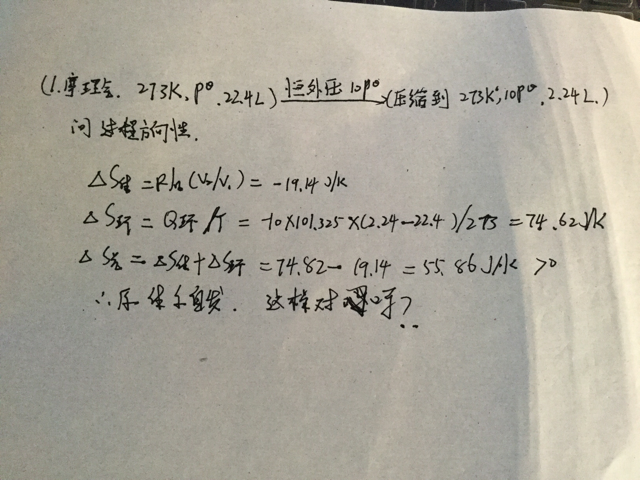 (1摩理气. 273K, P⊖, 22.4L) 恒外压10P⊖→ (压缩到 273K, 10P⊖, 2.24L.)
问 过程方向性.
ΔS体 = Rln(V₂/V₁) = -19.14 J/K
ΔS环 = Q环/T = -10×101.325×(2.24-22.4)/273 = 74.82 J/K
ΔS总 = ΔS体+ΔS环 = 74.82-19.14 = 55.86 J/K >0
∴ 自发. 这样对吗?